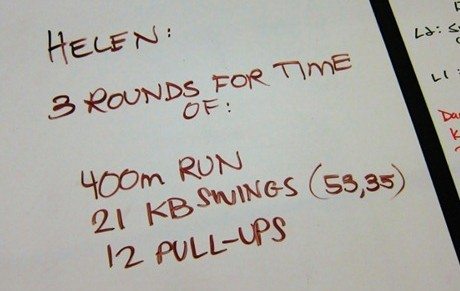 HELEN:
3 ROUNDS FOR TIME
OF:
400m RUN
21 KB SWINGS (53,35)
12 PULL-UPS
L2:
L1: